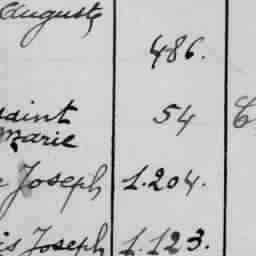 Auguste
486.
saint 54
Marie
Joseph 1.204.
is Joseph 1.123.